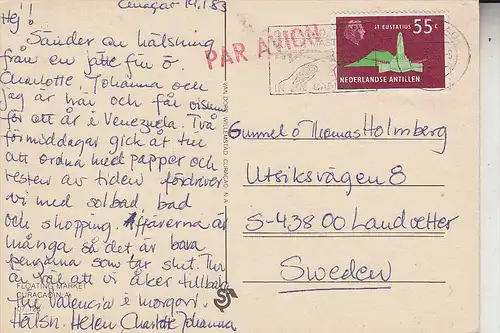 Curaçao 19.1.83
Hej!
Sänder en hälsning
från en jätte fin ö.
Charlotte, Johanna och
jag är här och får visum
för att åk i Venezuela. Två
förmiddagar gick åt till
att ordna med papper och
resten av tiden fördriver
vi med solbad, bad
och shopping. Affärerna är
många så det är bara
pengarna som tar slut.
att vi åker tillbaka
Valencia i morgon.
Hälsn. Helen Charlotte Johanna
FLOATING MARKET
CURACAO N.A.
VAN DORP WILLEMSTAD CURACAO N.A.
PAR AVION
ST EUSTATIUS 55c
NEDERLANDSE ANTILLEN
Gunnel o Thomas Holmberg
Utsiksvägen 8
S-438 00 Landvetter
Sweden